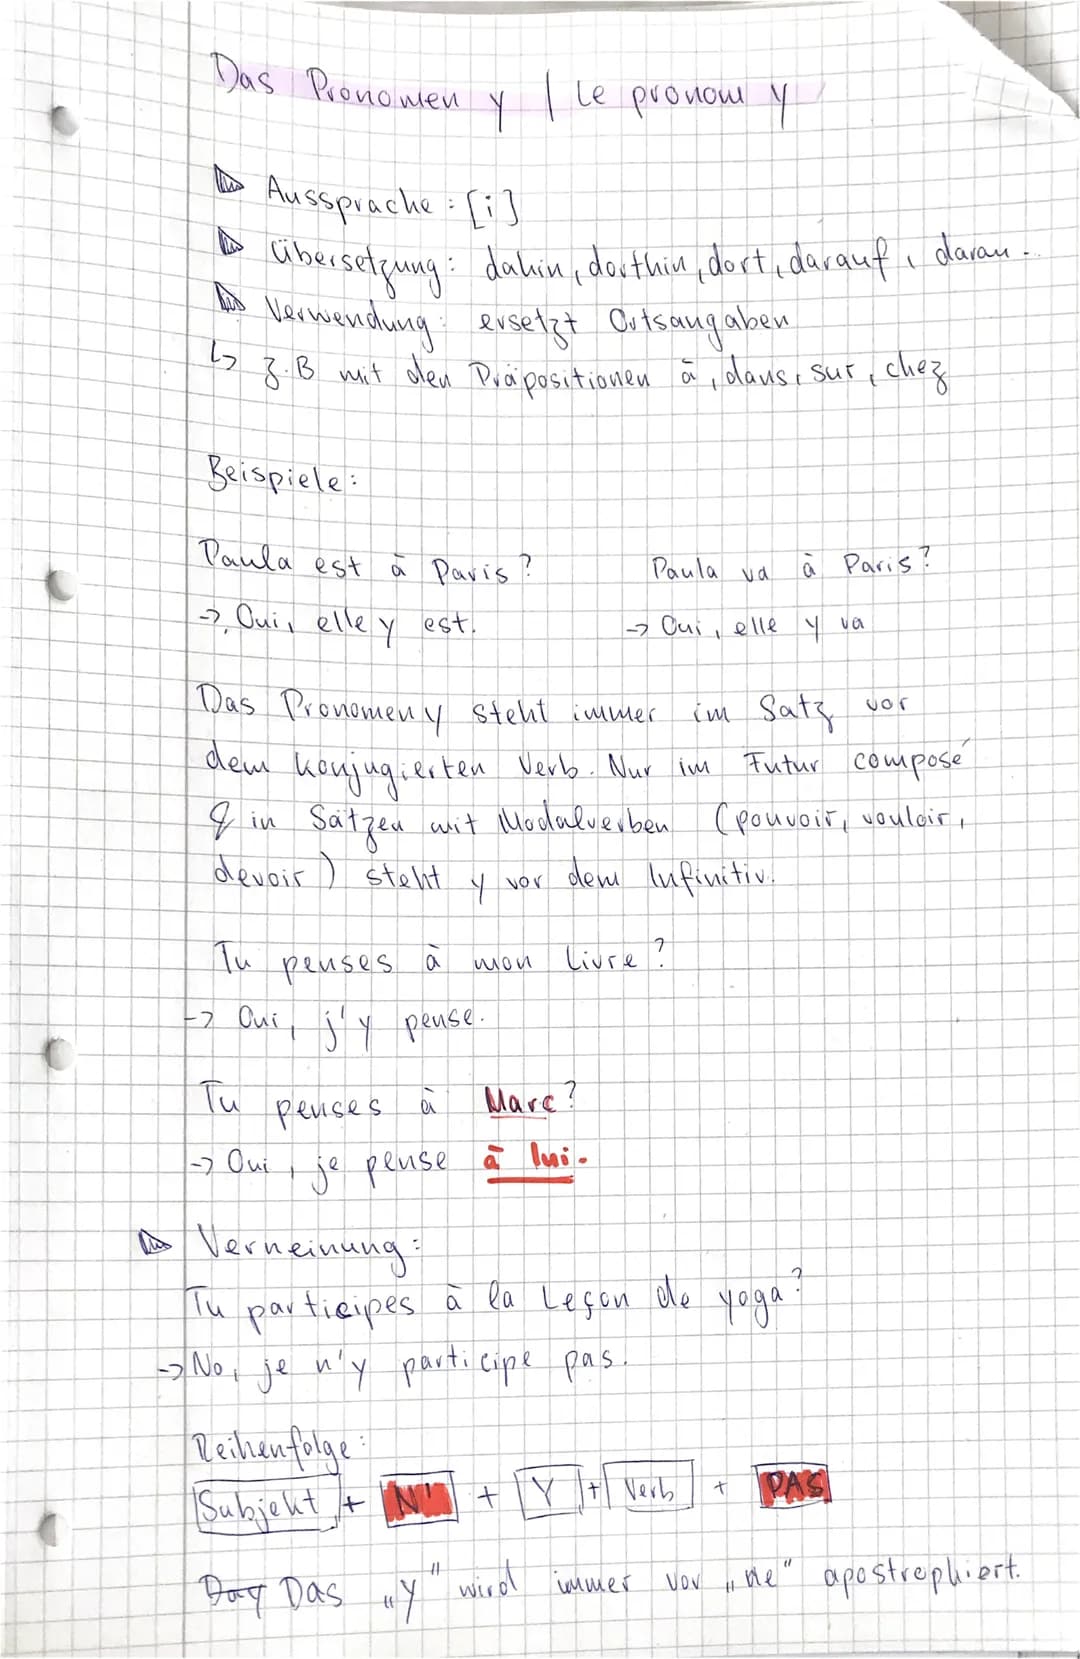 Das Pronomen y / Le pronom y
Aussprache: [i]
Übersetzung: dahin, dorthin, dort, darauf, daran...
Verwendung: ersetzt Ortsangaben
↳ z.B mit den Präpositionen à, dans, sur, chez
Beispiele:
Paula est à Paris? Paula va à Paris?
→ Oui, elle y est. → Oui, elle y va
Das Pronomen y steht immer im Satz vor
dem konjugierten Verb. Nur im Futur composé
& in Sätzen mit Modalverben (pouvoir, vouloir,
devoir) steht y vor dem Infinitiv.
Tu penses à mon livre?
→ Oui, j'y pense.
Tu penses à Marc?
→ Oui, je pense à lui.
Verneinung:
Tu participes à la Leçon de yoga?
→ No, je n'y participe pas.
Reihenfolge:
Subjekt + N' + Y + Verb + PAS
Das „y" wird immer vor „ne" apostrophiert.